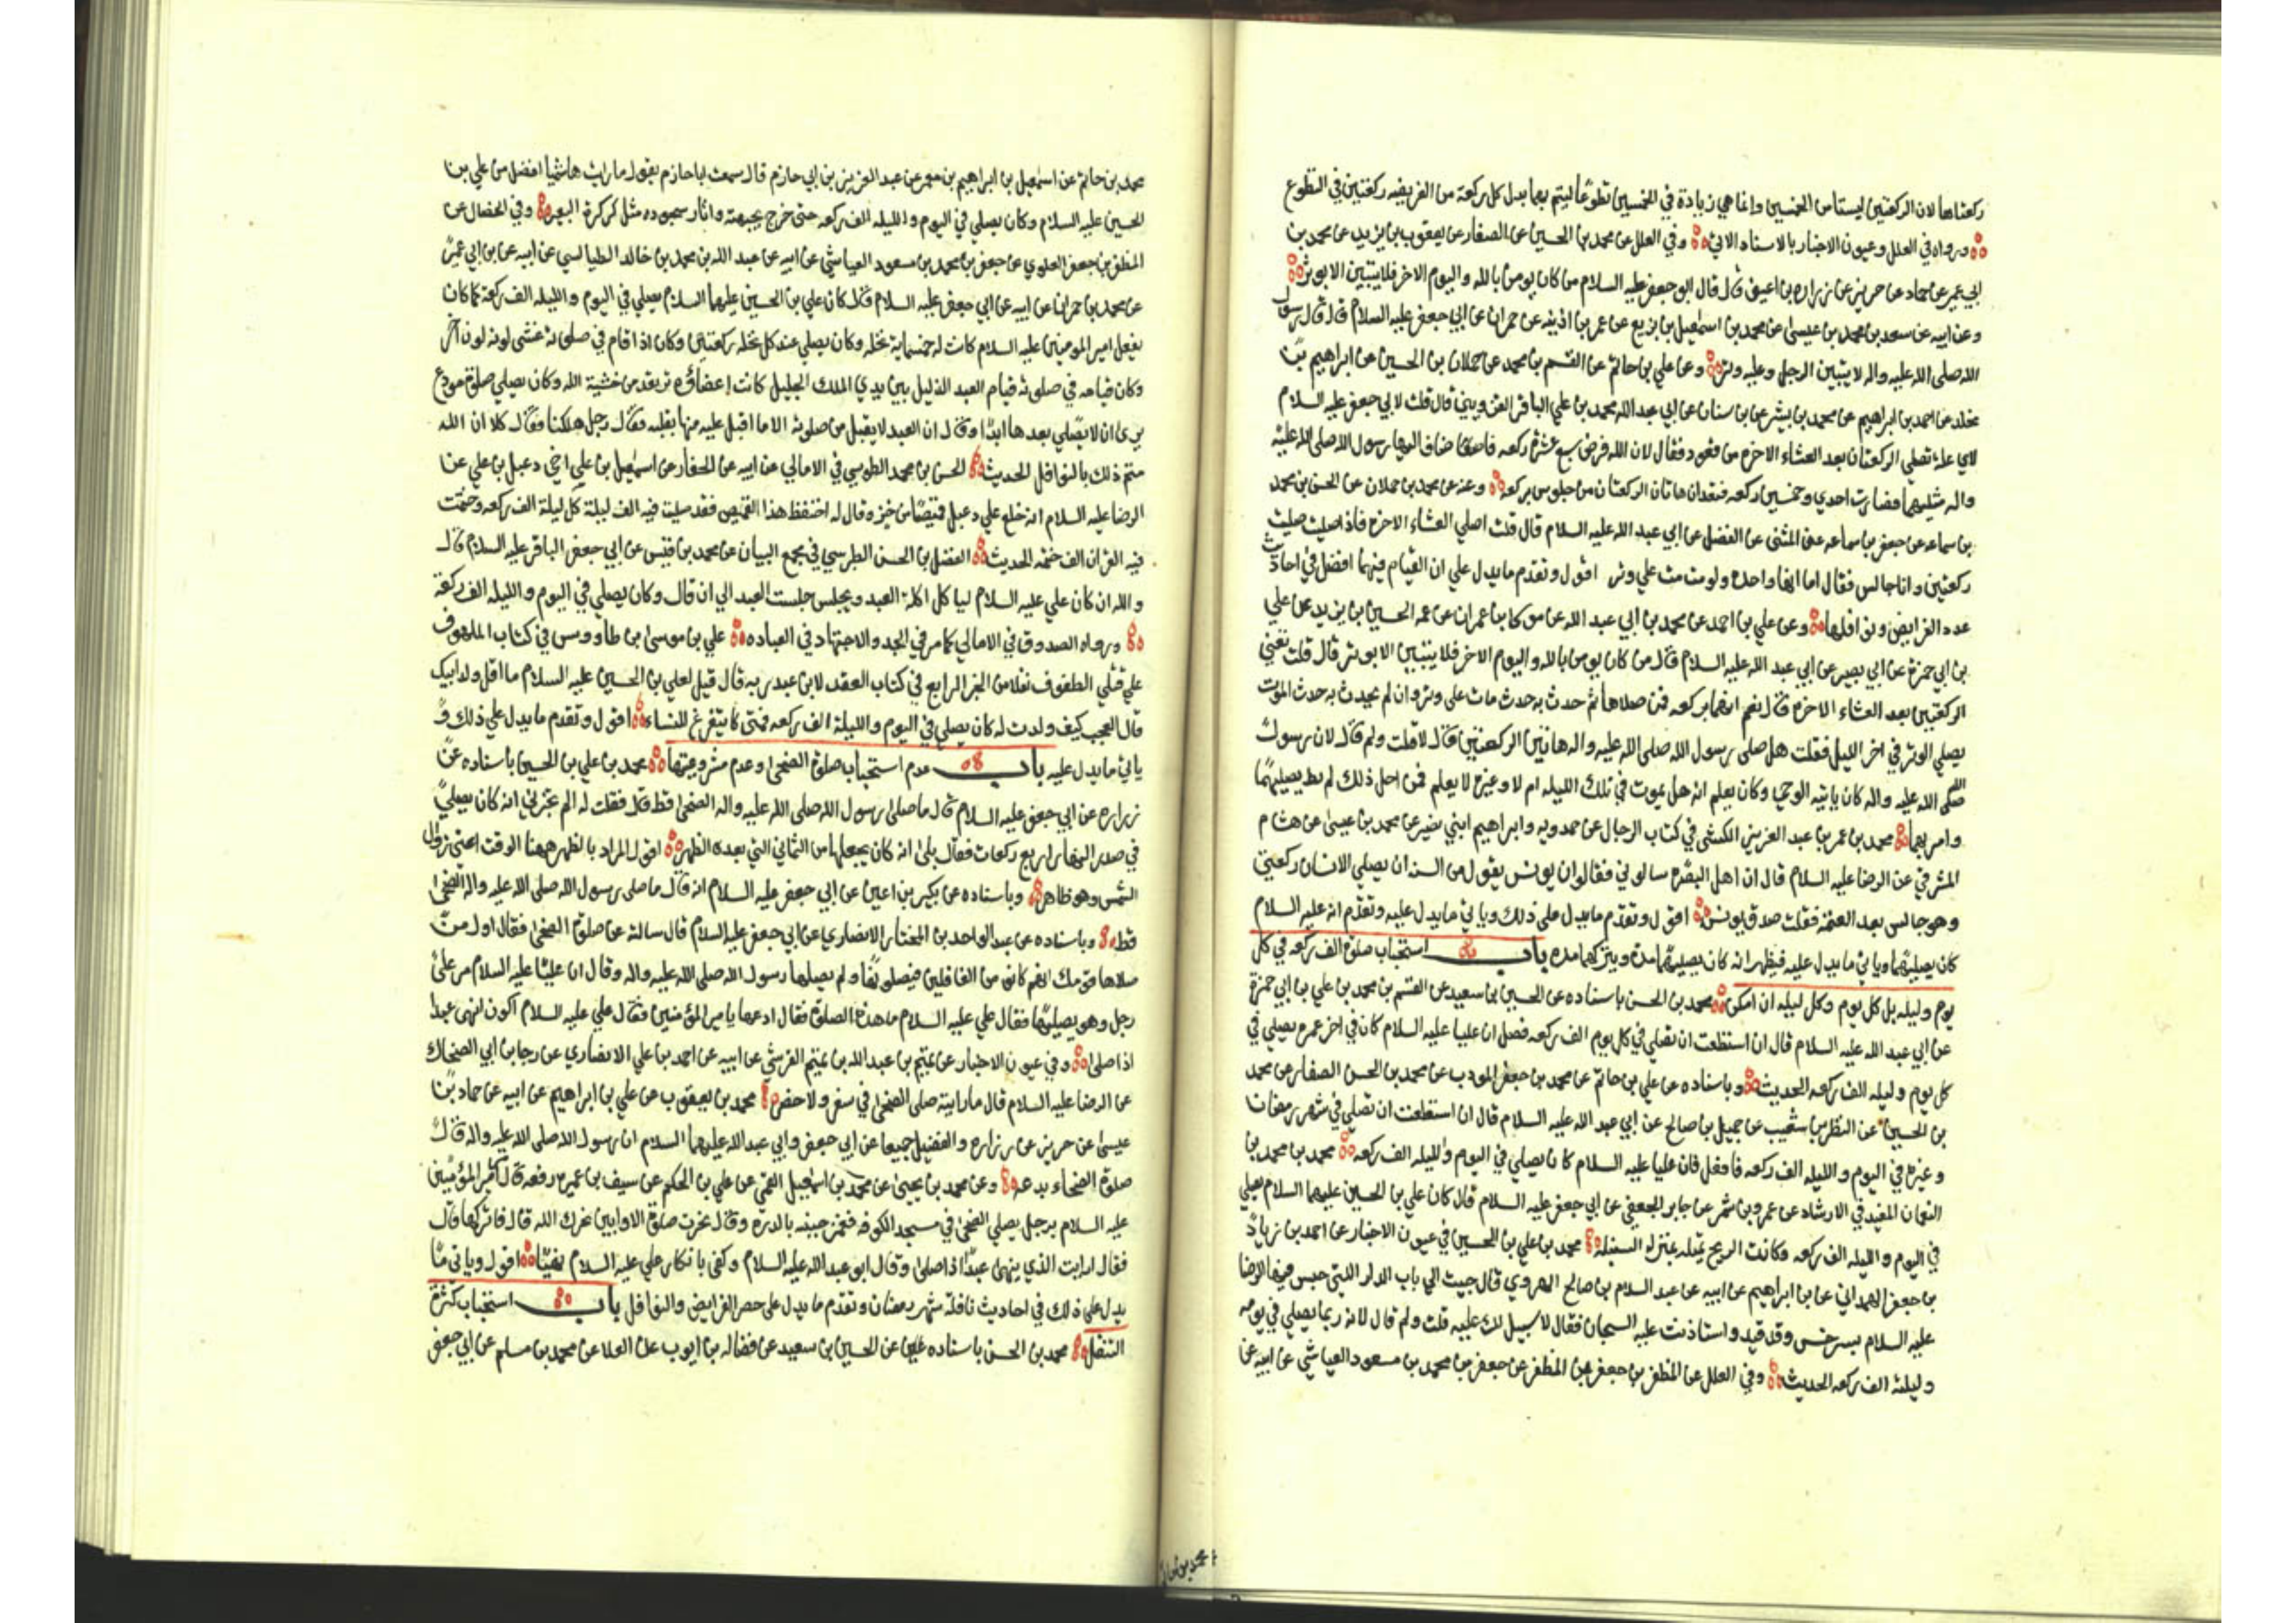 ركعتاها لان الركعتين ليستا من الخمسين وانما هي زيادة في الخمسين تطوعا ليتم بهما بدل كل ركعة من الفريضه ركعتين في التطوع
ورواه في العلل وعيون الاخبار بالاسناد الاتي وفي العلل عن محمد بن الحسين عن الصفار عن يعقوب بن يزيد عن محمد بن
ابي عمير عن حماد عن حريز عن زراره بن اعين قال قال ابو جعفر عليه السلام من كان يومن بالله واليوم الاخر فلا يبيتن الا بوتر
وعن ابيه عن سعد بن محمد بن عيسى عن محمد بن اسمعيل بن بزيع عن عمر بن اذينه عن حمران عن ابي جعفر عليه السلام قال قال رسول
الله صلى الله عليه واله لا يبيتن الرجل وعليه وتر وعن علي بن حاتم عن القسم بن محمد عن حملان بن الحسين عن ابراهيم بن
مخلد عن احمد بن ابراهيم عن محمد بن بشير عن بن سنان عن ابي عبد الله محمد بن علي الباقر القزويني قال قلت لابي جعفر عليه السلام
لاي علة تصلي الركعتان بعد العشاء الاخره من قعود فقال لان الله فرض سبع عشرة ركعه فاضاف اليها رسول الله صلى الله عليه
واله مثليهما فصارت احدي وخمسين ركعه فتعدان هاتان الركعتان من جلوس بركعة وعنه عن محمد بن حملان عن الحسن بن محمد
بن سماعه عن جعفر بن سماعه عن المثنى عن الفضل عن ابي عبد الله عليه السلام قال قلت اصلي العشاء الاخره فاذا صليت صليت
ركعتين وانا جالس فقال اما انها واحدة ولو مت مت علي وتر اقول وتقدم ما يدل علي ان القيام فيهما افضل في احاديث
عدد الفرايض ونوافلها وعن علي بن احمد عن محمد بن ابي عبد الله عن موسى بن عمران عن عمه الحسين بن يزيد عن علي
بن ابي حمزة عن ابي بصير عن ابي عبد الله عليه السلام قال من كان يومن بالله واليوم الاخر فلا يبيتن الا بوتر قال قلت تعني
الركعتين بعد العشاء الاخره قال نعم انهما بركعه فمن صلاها ثم حدث به حدث مات على وتر وان لم يحدث به حدث الموت
يصلي الوتر في اخر الليل فقلت هل صلى رسول الله صلى الله عليه واله هاتين الركعتين قال لا قلت ولم قال لان رسول
الله صلى الله عليه واله كان ياتيه الوحي وكان يعلم انه هل يموت في تلك الليله ام لا وغيره لا يعلم فمن اجل ذلك لم يصليهما
وامر بهما محمد بن عمر بن عبد العزيز الكشي في كتاب الرجال عن حمدويه وابراهيم ابني نصير عن محمد بن عيسى عن هشام
المشرقي عن الرضا عليه السلام قال ان اهل البصره سالوني فقالوا ان يونس يقول من السنه ان يصلي الانسان ركعتين
وهو جالس بعد العتمة فقلت صدق يونس اقول وتقدم ما يدل على ذلك وياتي ما يدل عليه وتقدم انه عليه السلام
كان يصليهما وياتي ما يدل عليه فيظهر انه كان يصليهما مدة ويتركهما مده باب استحباب صلوة الف ركعه في كل
يوم وليله بل كل يوم وكل ليله ان امكن محمد بن الحسن باسناده عن الحسين بن سعيد عن القسم بن محمد بن علي بن ابي حمزة
عن ابي عبد الله عليه السلام قال ان استطعت ان تصلي في كل يوم الف ركعه فصل ان عليا عليه السلام كان في اخر عمره يصلي في
كل يوم وليله الف ركعه الحديث وباسناده عن علي بن حاتم عن محمد بن جعفر المودب عن محمد بن الحسن الصفار عن محمد
بن الحسين عن النظر بن شعيب عن جميل بن صالح عن ابي عبد الله عليه السلام قال ان استطعت ان تصلي في شهر رمضان
وغيره في اليوم والليله الف ركعه فافعل فان عليا عليه السلام كان يصلي في اليوم والليله الف ركعه محمد بن محمد بن
النعمان المفيد في الارشاد عن عمرو بن شمر عن جابر الجعفي عن ابي جعفر عليه السلام قال كان علي بن الحسين عليهما السلام يصلي
في اليوم والليله الف ركعه وكانت الريح تميله بمنزلة السنبله محمد بن علي بن الحسين في عيون الاخبار عن احمد بن زياد
بن جعفر الهمداني عن بن ابراهيم عن ابيه عن عبد السلام بن صالح الهروي قال جيت الي باب الدار التي حبس فيها الرضا
عليه السلام بسرخس وقد قيد واستاذنت عليه السجان فقال لا سبيل لك عليه قلت ولم قال لانه ربما يصلي في يومه
وليلته الف ركعه الحديث وفي العلل عن المظفر بن جعفر بن المظفر عن جعفر بن محمد بن مسعود العياشي عن ابيه عن
محمد بن حا
محمد بن حاتم عن اسمعيل بن ابراهيم بن معمر عن عبد العزيز بن ابي حازم قال سمعت ابا حازم يقول ما رايت هاشميا افضل من علي بن
الحسين عليه السلام وكان يصلي في اليوم والليله الف ركعه حتى خرج بجبهته واثار سجوده مثل كركرة البعير وفي الخصال عن
المظفر بن جعفر العلوي عن جعفر بن محمد بن مسعود العياشي عن ابيه عن عبد الله بن محمد بن خالد الطيالسي عن ابيه عن بن ابي عمير
عن محمد بن حمران عن ابيه عن ابي جعفر عليه السلام قال كان علي بن الحسين عليهما السلام يصلي في اليوم والليله الف ركعة كما كان
يفعل امير المومنين عليه السلام كانت له خمسماية نخله وكان يصلي عند كل نخله ركعتين وكان اذا قام في صلوته غشى لونه لون اخر
وكان قيامه في صلوته قيام العبد الذليل بين يدي الملك الجليل كانت اعضاؤه ترتعد من خشية الله وكان يصلي صلوة مودع
يرى ان لا يصلي بعدها ابدا وقال ان العبد لا يقبل من صلوته الا ما اقبل عليه منها بقلبه فقال رجل هلكنا فقال كلا ان الله
متم ذلك بالنوافل الحديث الحسن بن محمد الطوسي في الامالي عن ابيه عن الحفار عن اسمعيل بن علي اخي دعبل بن علي عن
الرضا عليه السلام انه خلع علي دعبل قميصا من خز وقال له احتفظ هذا القميص فقد صليت فيه الف ليلة كل ليلة الف ركعه وختمت
فيه القران الف ختمه الحديث الفضل بن الحسن الطبرسي في مجمع البيان عن محمد بن قيس عن ابي جعفر الباقر عليه السلام قال
والله ان كان علي عليه السلام لياكل اكلة العبد ويجلس جلست العبد الي ان قال وكان يصلي في اليوم والليله الف ركعة
ورواه الصدوق في الامالي كما مر في الجد والاجتهاد في العباده علي بن موسى بن طاووس في كتاب الملهوف
علي قتلي الطفوف نقلا من الجز الرابع في كتاب العقد لابن عبد ربه قال قيل لعلي بن الحسين عليه السلام ما اقل ولد ابيك
قال العجب كيف ولدت له كان يصلي في اليوم والليلة الف ركعه فمتى كا يتفرغ للنساء اقول وتقدم ما يدل علي ذلك و
ياتي ما يدل عليه باب عدم استحباب صلوة الضحى وعدم مشروعيتها محمد بن علي بن الحسين باسناده عن
زراره عن ابي جعفر عليه السلام قال ما صلى رسول الله صلى الله عليه واله الضحى قط قال فقلت له الم تخبرني انه كان يصلي
في صدر النهار اربع ركعات فقال بلى انه كان يجعلها من الثماني التي بعده الظهر اقول المراد بالظهر ههنا الوقت اعني زوال
الشمس وهو ظاهر وباسناده عن بكير بن اعين عن ابي جعفر عليه السلام انه قال ما صلى رسول الله صلى الله عليه واله الضحى
قط وباسناده عن عبد الواحد بن المختار الانصاري عن ابي جعفر عليه السلام قال سالته عن صلوة الضحى فقال اول من
صلاها قومك انهم كانوا من الغافلين فيصلونها ولم يصلها رسول الله صلى الله عليه واله وقال ان عليا عليه السلام مر على
رجل وهو يصليها فقال علي عليه السلام ما هذه الصلوة فقال ادعها يا امير المؤمنين فقال علي عليه السلام اكون انهى عبدا
اذا صلى وفي عيون الاخبار عن تميم بن عبد الله بن تميم القرشي عن ابيه عن احمد بن علي الانصاري عن رجا بن ابي الضحاك
عن الرضا عليه السلام قال ما رايته صلى الضحى في سفر ولا حضر محمد بن يعقوب عن علي بن ابراهيم عن ابيه عن حماد بن
عيسى عن حريز عن زراره والفضيل جميعا عن ابي جعفر وابي عبد الله عليهما السلام ان رسول الله صلى الله عليه واله قال
صلوة الضحاء بدعه وعن محمد بن يحيى عن محمد بن اسمعيل القمي عن علي بن الحكم عن سيف بن عميره رفعه قال مر امير المؤمنين
عليه السلام برجل يصلي الضحى في مسجد الكوفه فغمز جنبه بالدره وقال نحرت صلوة الاوابين نحرك الله قال فاتركها قال
فقال ارايت الذي ينهى عبدا اذا صلى وقال ابو عبد الله عليه السلام وكفى بانكار علي عليه السلام نهيا اقول وياتي ما
يدل على ذلك في احاديث نافلة شهر رمضان وتقدم ما يدل على حصر الفرايض والنوافل باب استحباب كثرة
التنفل محمد بن الحسن باسناده عن الحسين بن سعيد عن فضاله بن ايوب عن العلا عن محمد بن مسلم عن ابي جعفر